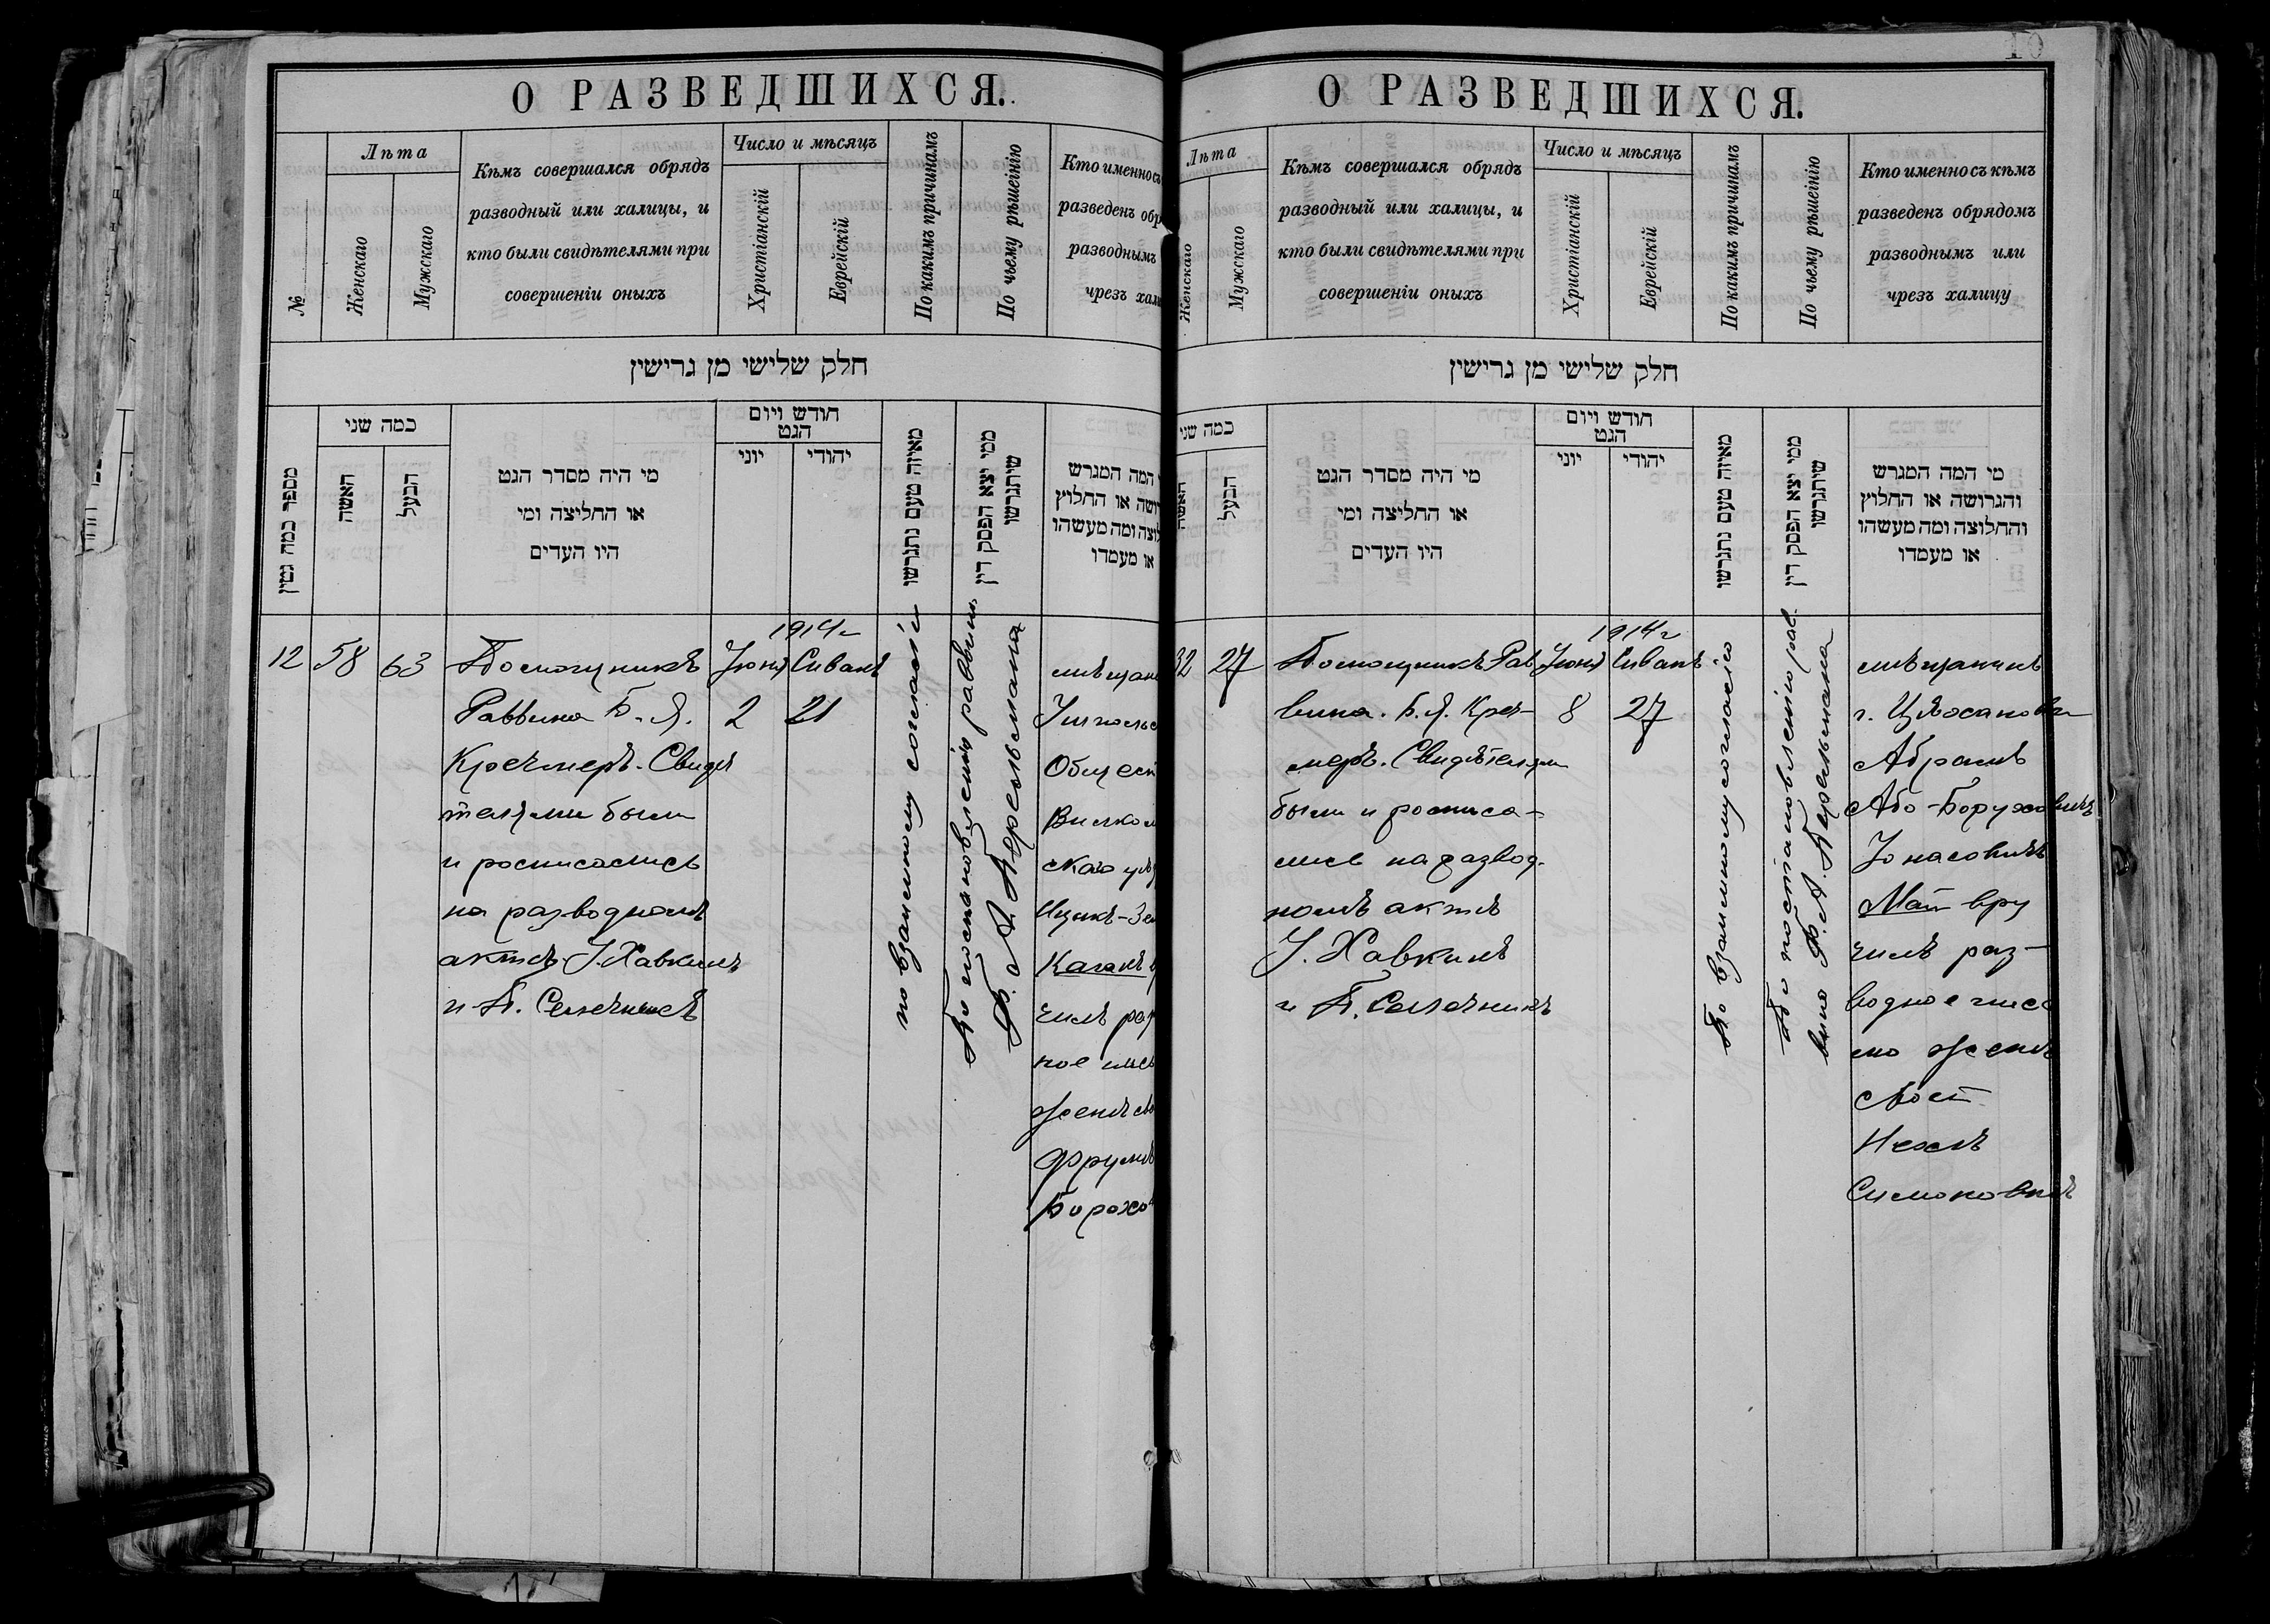 О РАЗВЕДШИХСЯ.
№
Лѣта
Женскаго
Мужскаго
Кѣмъ совершался обрядъ
разводный или халицы, и
кто были свидѣтелями при
совершеніи оныхъ
Число и мѣсяцъ
Христіанскій
Еврейскій
По какимъ причинамъ
По чьему рѣшенію
Кто именно съ
разведенъ обр
разводнымъ
чрезъ хали
חלק שלישי מן גרישין
מספר כמה גטין
כמה שני
האשה
הבעל
מי היה מסדר הגט
או החליצה ומי
היו העדים
חודש ויום
הגט
יוני
יהודי
מאיזה טעם נתגרשו
ממי יצא הפסק דין
שיתגרשו
המה המגרש
ושה או החלוץ
לוצה ומה מעשהו
או מעמדו
12
58
63
Помощникъ
Раввина Б. Я.
Кречмеръ. Свидѣ
телями были
и росписались
на разводномъ
актѣ І. Хавкинъ
и П. Семечникъ
1914 г
Іюня
2
Сиванъ
21
по взаимному согласію
По постановленію раввина
Ф. А. Перельмана
мѣщан
Ушпольс
Общест
Вилком
скаго уѣз
Ицикъ-Зе
Каганъ в
чилъ раз
ное пись
женѣ сво
Фрумѣ
Борохо
10
О РАЗВЕДШИХСЯ.
Лѣта
Женскаго
Мужскаго
Кѣмъ совершался обрядъ
разводный или халицы, и
кто были свидѣтелями при
совершеніи оныхъ
Число и мѣсяцъ
Христіанскій
Еврейскій
По какимъ причинамъ
По чьему рѣшенію
Кто именно съ кѣмъ
разведенъ обрядомъ
разводнымъ или
чрезъ халицу
חלק שלישי מן גרישין
כמה שני
האשה
הבעל
מי היה מסדר הגט
או החליצה ומי
היו העדים
חודש ויום
הגט
יוני
יהודי
מאיזה טעם נתגרשו
ממי יצא הפסק דין
שיתגרשו
מי המה המגרש
והגרושה או החלוץ
והחלוצה ומה מעשהו
או מעמדו
32
27
Помощникъ Рав
вина. Б. Я. Креч-
меръ. Свидѣтелями
были и росписа-
лись на развод-
номъ актѣ
І. Хавкинъ
и П. Семечникъ
1914 г
Іюня
8
Сиванъ
27
По взаимному согласію
По постановленію рав-
вина Ф. А. Перельмана
мѣщанинъ
г. Цѣханова
Абрамъ
Або-Боруховичъ
Іонасовичъ
Май вру
чилъ раз-
водное пись
мо женѣ
своей
Нехмѣ
Симоновнѣ